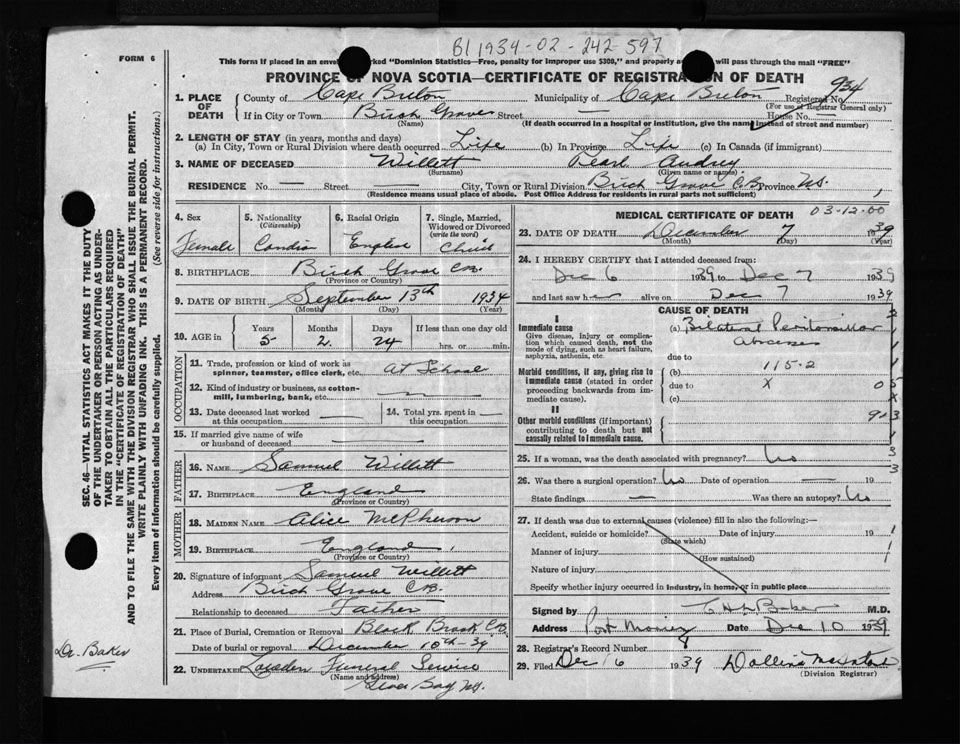 B1 1934-02-242-597
FORM 6
This form if placed in an envel rked "Dominion Statistics—Free, penalty for improper use $300," and properly a will pass through the mail "FREE"
PROVINCE OF NOVA SCOTIA—CERTIFICATE OF REGISTRATION OF DEATH
1. PLACE OF DEATH County of Cape Breton Municipality of Cape Breton Registered No. 934
(For use of Registrar General only)
If in City or Town Birch Grove Street — House No. —
(Name) (If death occurred in a hospital or institution, give the name instead of street and number)
2. LENGTH OF STAY (in years, months and days)
(a) In City, Town or Rural Division where death occurred Life (b) In Province Life (c) In Canada (if immigrant)
3. NAME OF DECEASED Willett Pearl Audrey
(Surname) (Given name or names)
RESIDENCE No. — Street — City, Town or Rural Division Birch Grove C.B. Province N.S.
(Residence means usual place of abode. Post Office Address for residents in rural parts not sufficient)
4. Sex 5. Nationality (Citizenship) 6. Racial Origin 7. Single, Married, Widowed or Divorced (write the word)
Female Candian English Child
8. BIRTHPLACE Birch Grove C.B.
(Province or Country)
9. DATE OF BIRTH September 13th 1934
(Month) (Day) (Year)
10. AGE in Years Months Days If less than one day old
5 2 24 hrs. or min.
OCCUPATION
11. Trade, profession or kind of work as spinner, teamster, office clerk, etc. At School
12. Kind of industry or business, as cotton-mill, lumbering, bank, etc. —
13. Date deceased last worked at this occupation — 14. Total yrs. spent in this occupation —
15. If married give name of wife or husband of deceased —
FATHER
16. NAME Samuel Willett
17. BIRTHPLACE England
(Province or Country)
MOTHER
18. MAIDEN NAME Alice McPherson
19. BIRTHPLACE England
(Province or Country)
20. Signature of informant Samuel Willett
Address Birch Grove C.B.
Relationship to deceased Father
21. Place of Burial, Cremation or Removal Black Brook C.B.
Date of burial or removal December 10th - 39
22. UNDERTAKER Funeral Service
(Name and address)
Glace Bay N.S.
MEDICAL CERTIFICATE OF DEATH 03-12-00
23. DATE OF DEATH December 7 1939
(Month) (Day) (Year)
24. I HEREBY CERTIFY that I attended deceased from:
Dec 6 1939 to Dec 7 1939
and last saw her alive on Dec 7 1939
CAUSE OF DEATH
I
Immediate cause
Give disease, injury or complication which caused death, not the mode of dying, such as heart failure, asphyxia, asthenia, etc.
(a) Bilateral Peritonsillar
Abscesses
due to
Morbid conditions, if any, giving rise to immediate cause (stated in order proceeding backwards from immediate cause).
(b) 115-2
due to X
(c)
II
Other morbid conditions (if important) contributing to death but not causally related to immediate cause.
25. If a woman, was the death associated with pregnancy? No
26. Was there a surgical operation? No Date of operation — 19
State findings — Was there an autopsy? No
27. If death was due to external causes (violence) fill in also the following:—
Accident, suicide or homicide? Date of injury 19
(State which)
Manner of injury
(How sustained)
Nature of injury
Specify whether injury occurred in industry, in home, or in public place
Signed by Baker M.D.
Address Port Morien Date Dec 10 1939
28. Registrar's Record Number 8
29. Filed Dec 16 1939
(Division Registrar)
SEC. 46—VITAL STATISTICS ACT MAKES IT THE DUTY
OF THE UNDERTAKER OR PERSON ACTING AS UNDERTAKER
TO OBTAIN ALL THE PARTICULARS REQUIRED
IN THE "CERTIFICATE OF REGISTRATION OF DEATH"
AND TO FILE THE SAME WITH THE DIVISION REGISTRAR WHO SHALL ISSUE THE BURIAL PERMIT.
WRITE PLAINLY WITH UNFADING INK. THIS IS A PERMANENT RECORD.
Every item of information should be carefully supplied. (See reverse side for instructions.)
Dr. Baker